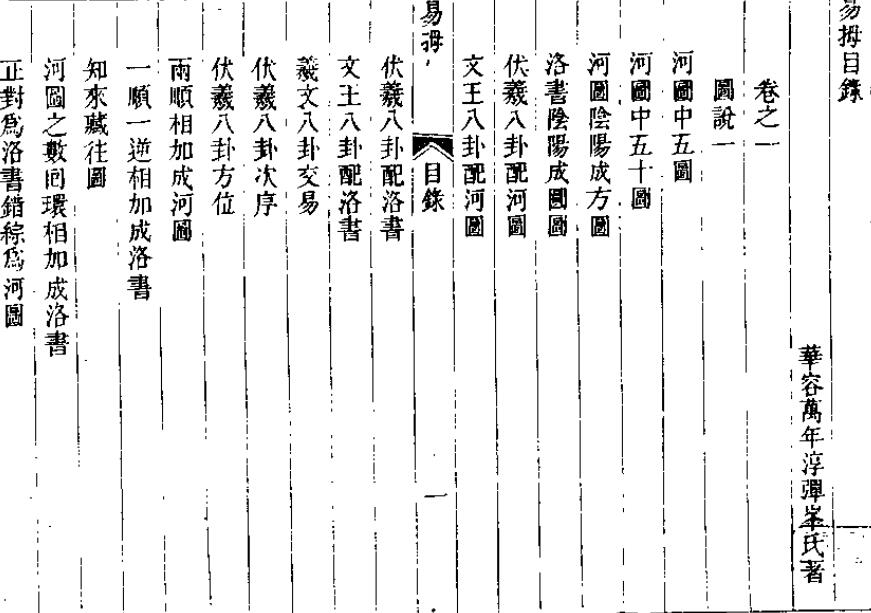 易拇目錄
華容萬年淳彈峯氏著
卷之一
圖說一
河圖中五圖
河圖中五十圖
河圖陰陽成方圖
洛書陰陽成圓圖
伏羲八卦配河圖
文王八卦配河圖
易拇
目錄
一
伏羲八卦配洛書
文王八卦配洛書
羲文八卦交易
伏羲八卦次序
伏羲八卦方位
兩順相加成河圖
一順一逆相加成洛書
知來藏往圖
河圖之數回環相加成洛書
正對爲洛書錯綜爲河圖